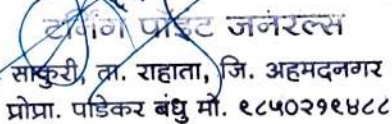 टर्निंग पॉईंट जनरल्स
साकुरी, ता. राहाता, जि. अहमदनगर
प्रोप्रा. पाडेकर बंधु मो. ९८५०२१९४८८